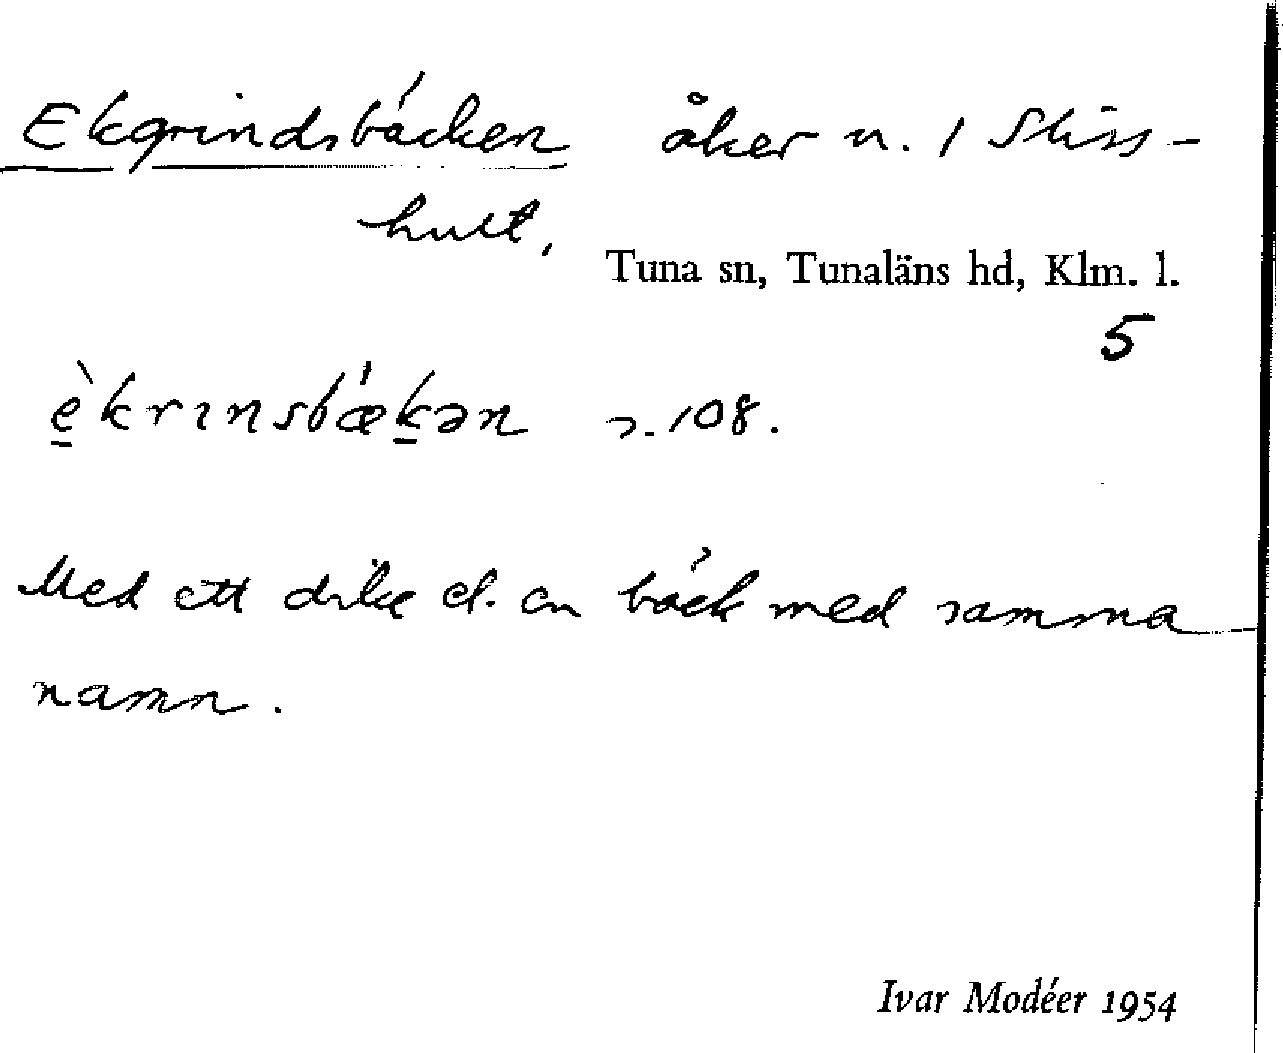 Ekgrindsbäcken åker n. 1 Sliss-
hult,
Tuna sn, Tunaläns hd, Klm. l.
5
è̱krınsbæ̍ḵən s. 108.
Med ett dike el. en bäck med samma
namn.
Ivar Modéer 1954